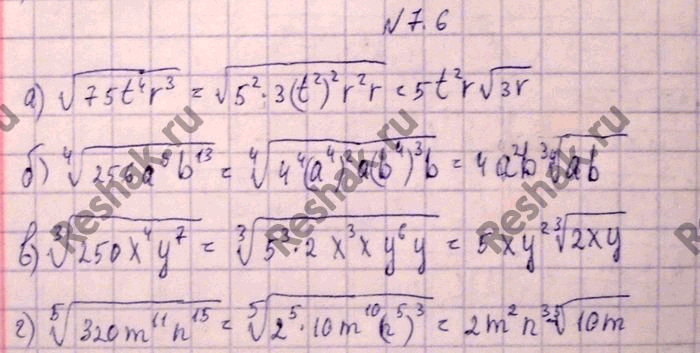 №7.6
а) √(75t⁴r³) = √(5²·3(t²)²r²r) = 5t²r√(3r)
б) ⁴√(256a⁹b¹³) = ⁴√(4⁴(a⁴)²a(b⁴)³b) = 4a²b³ ⁴√(ab)
в) ³√(250x⁴y⁷) = ³√(5³·2x³xy⁶y) = 5xy² ³√(2xy)
г) ⁵√(320m¹¹n¹⁵) = ⁵√(2⁵·10m¹⁰(n⁵)³) = 2m²n³ ⁵√(10m)
Reshak.ru
Reshak.ru
Reshak.ru